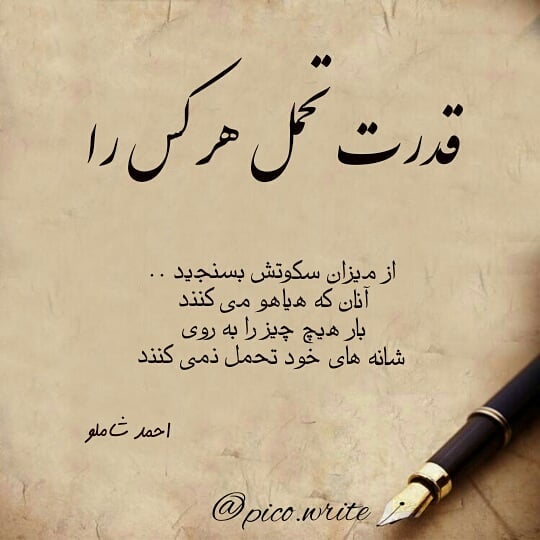 قدرت تحمل هر کس را
از میزان سکوتش بسنجید ..
آنان که هیاهو می کنند
بار هیچ چیز را به روی
شانه های خود تحمل نمی کنند
احمد شاملو
@pico.write